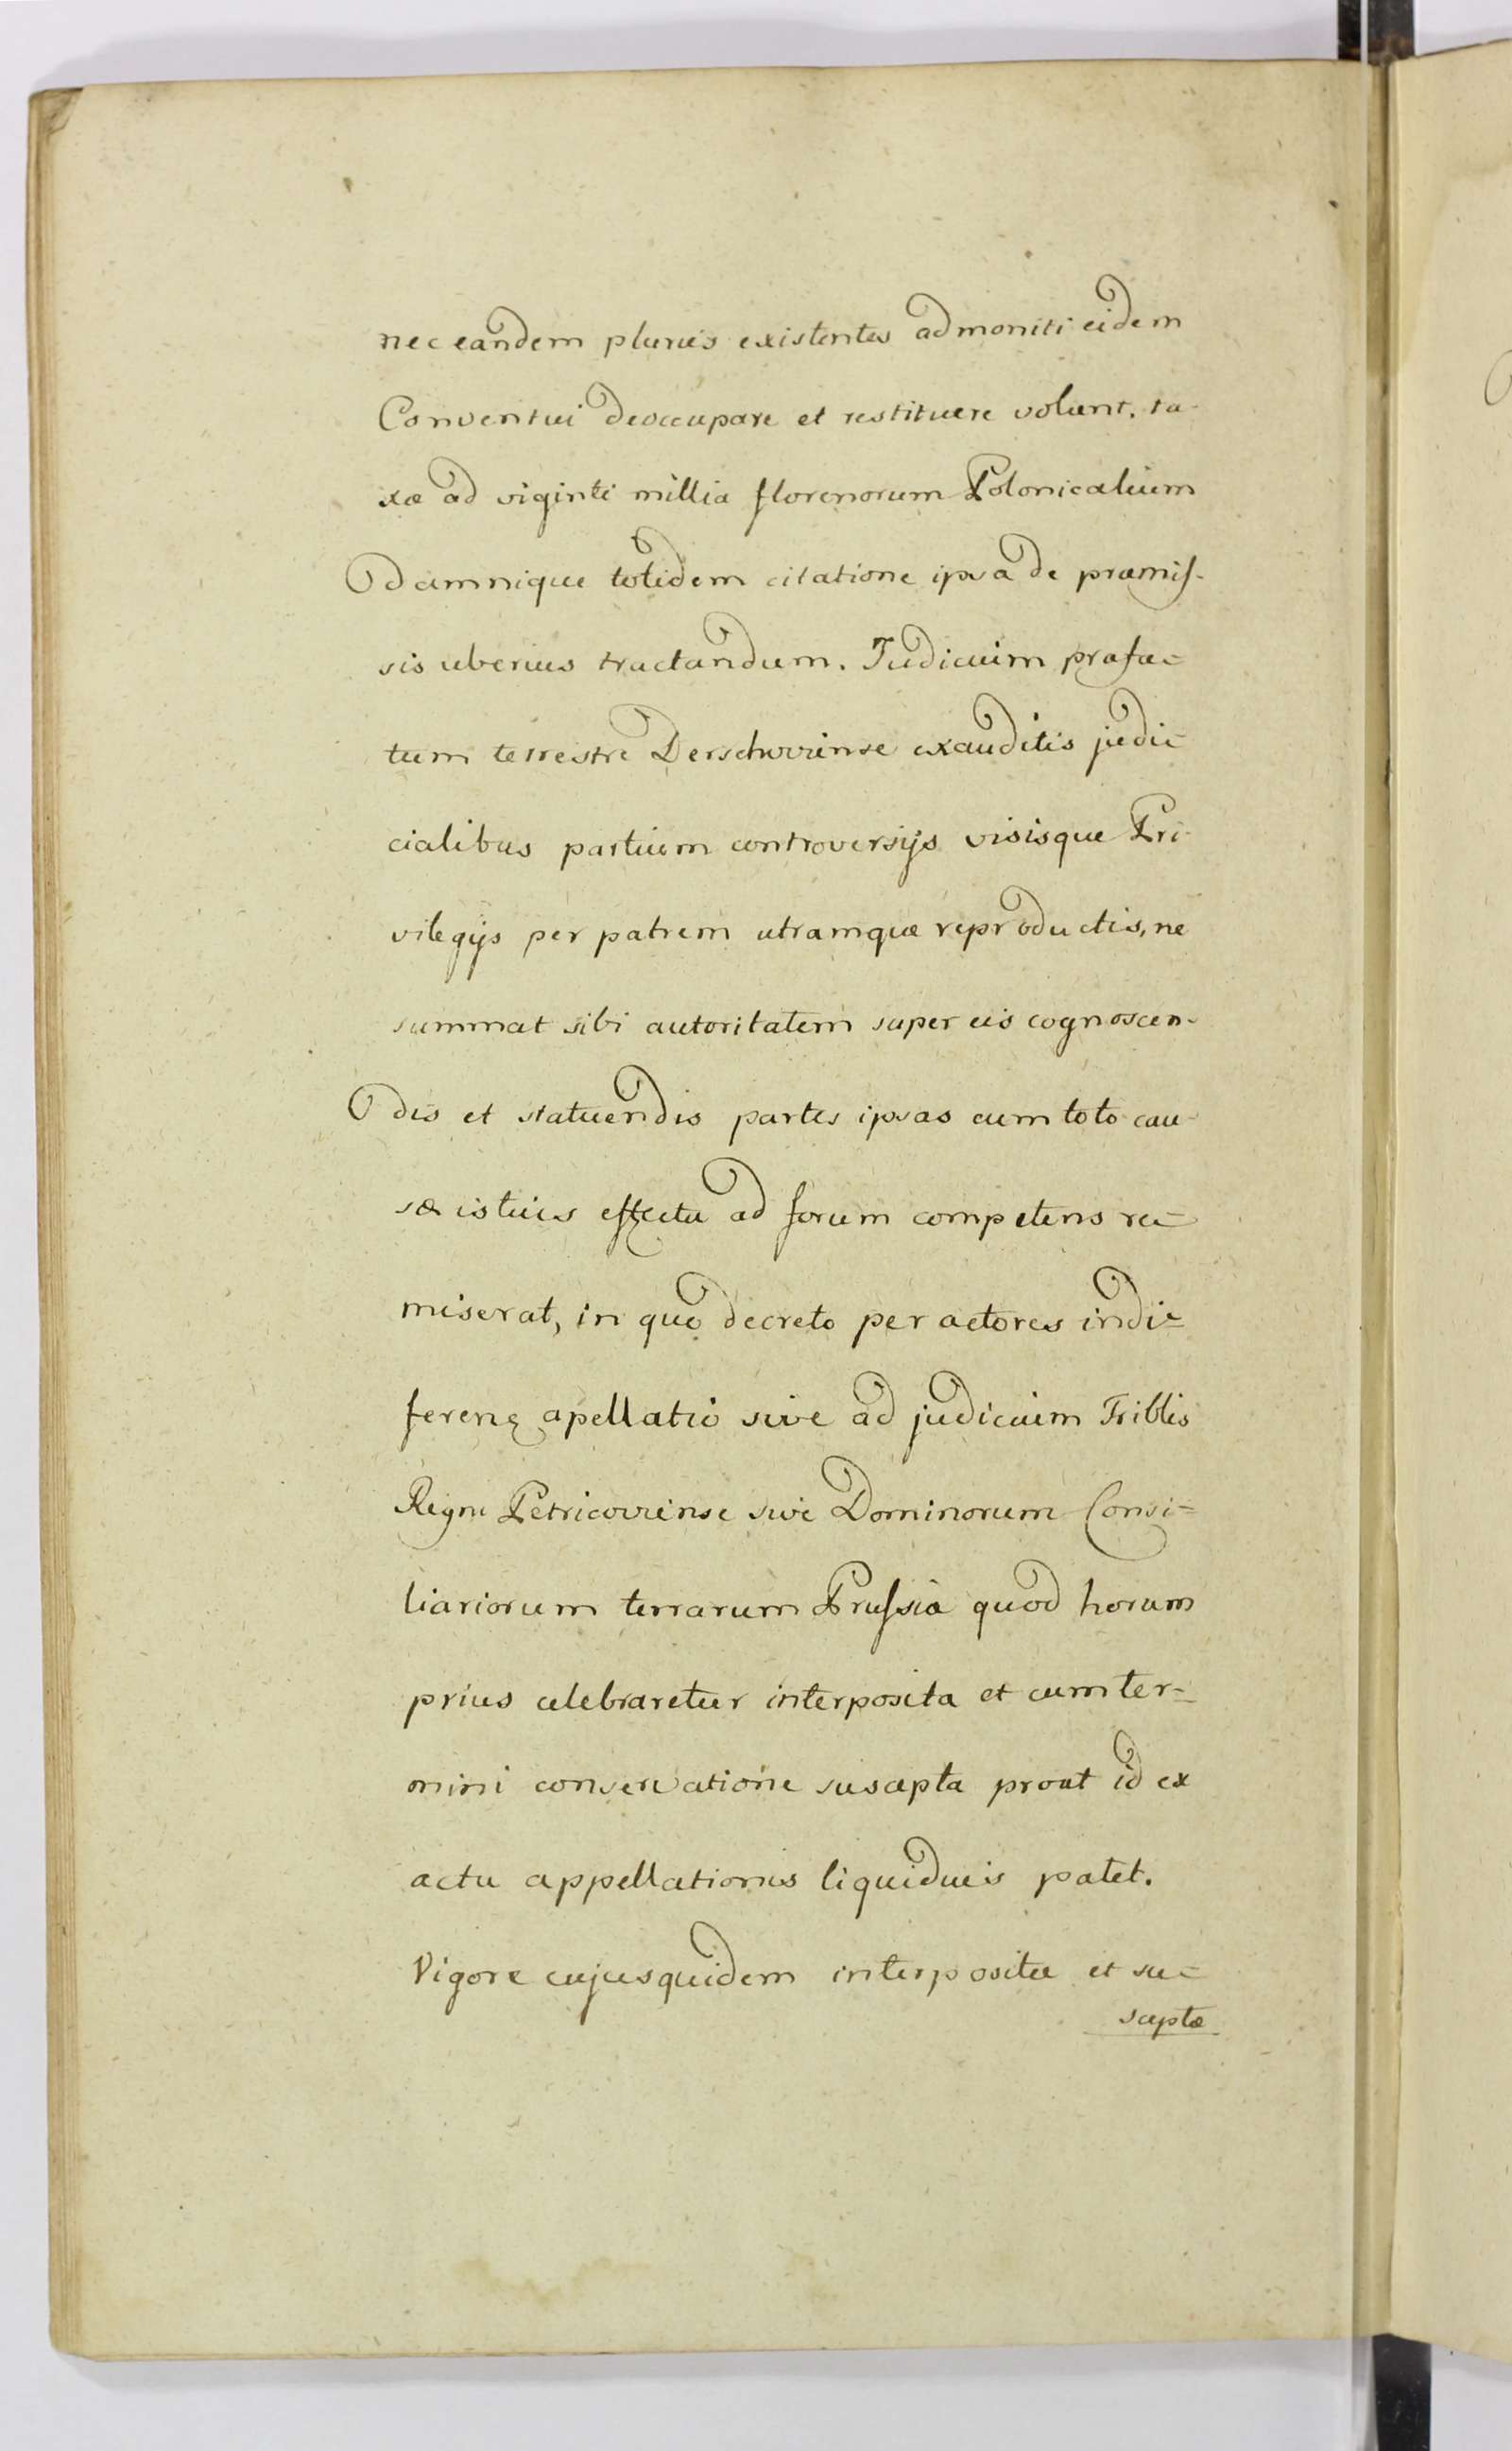 nec eandem pluries existentes admoniti eidem
Conventui deoccupare et restituere volunt. ta-
xæ ad viginti millia florenorum Polonicalium
damnique totidem citatione ipsa de præmis-
sis uberius tractandum. Judicium præfa=
tum terrestre Derschoviense exauditis judi=
cialibus partium controversijs visisque Pri-
vilegijs per patrem utramque reproductis, ne
summat sibi autoritatem super eis cognoscen-
dis et statuendis partes ipsas cum toto cau-
sæ istius effectu ad forum competens re=
miserat, in quo decreto per actores indi=
ferens apellatio sive ad judicium Triblis
Regni Petricoviense sive Dominorum Consi=
liariorum terrarum Prussiæ quod horum
prius celebraretur interposita et cum ter=
mini conservatione suscepta prout id ex
actu appellationis liquidius patet.
Vigore cujusquidem interpositæ et su=
sceptæ